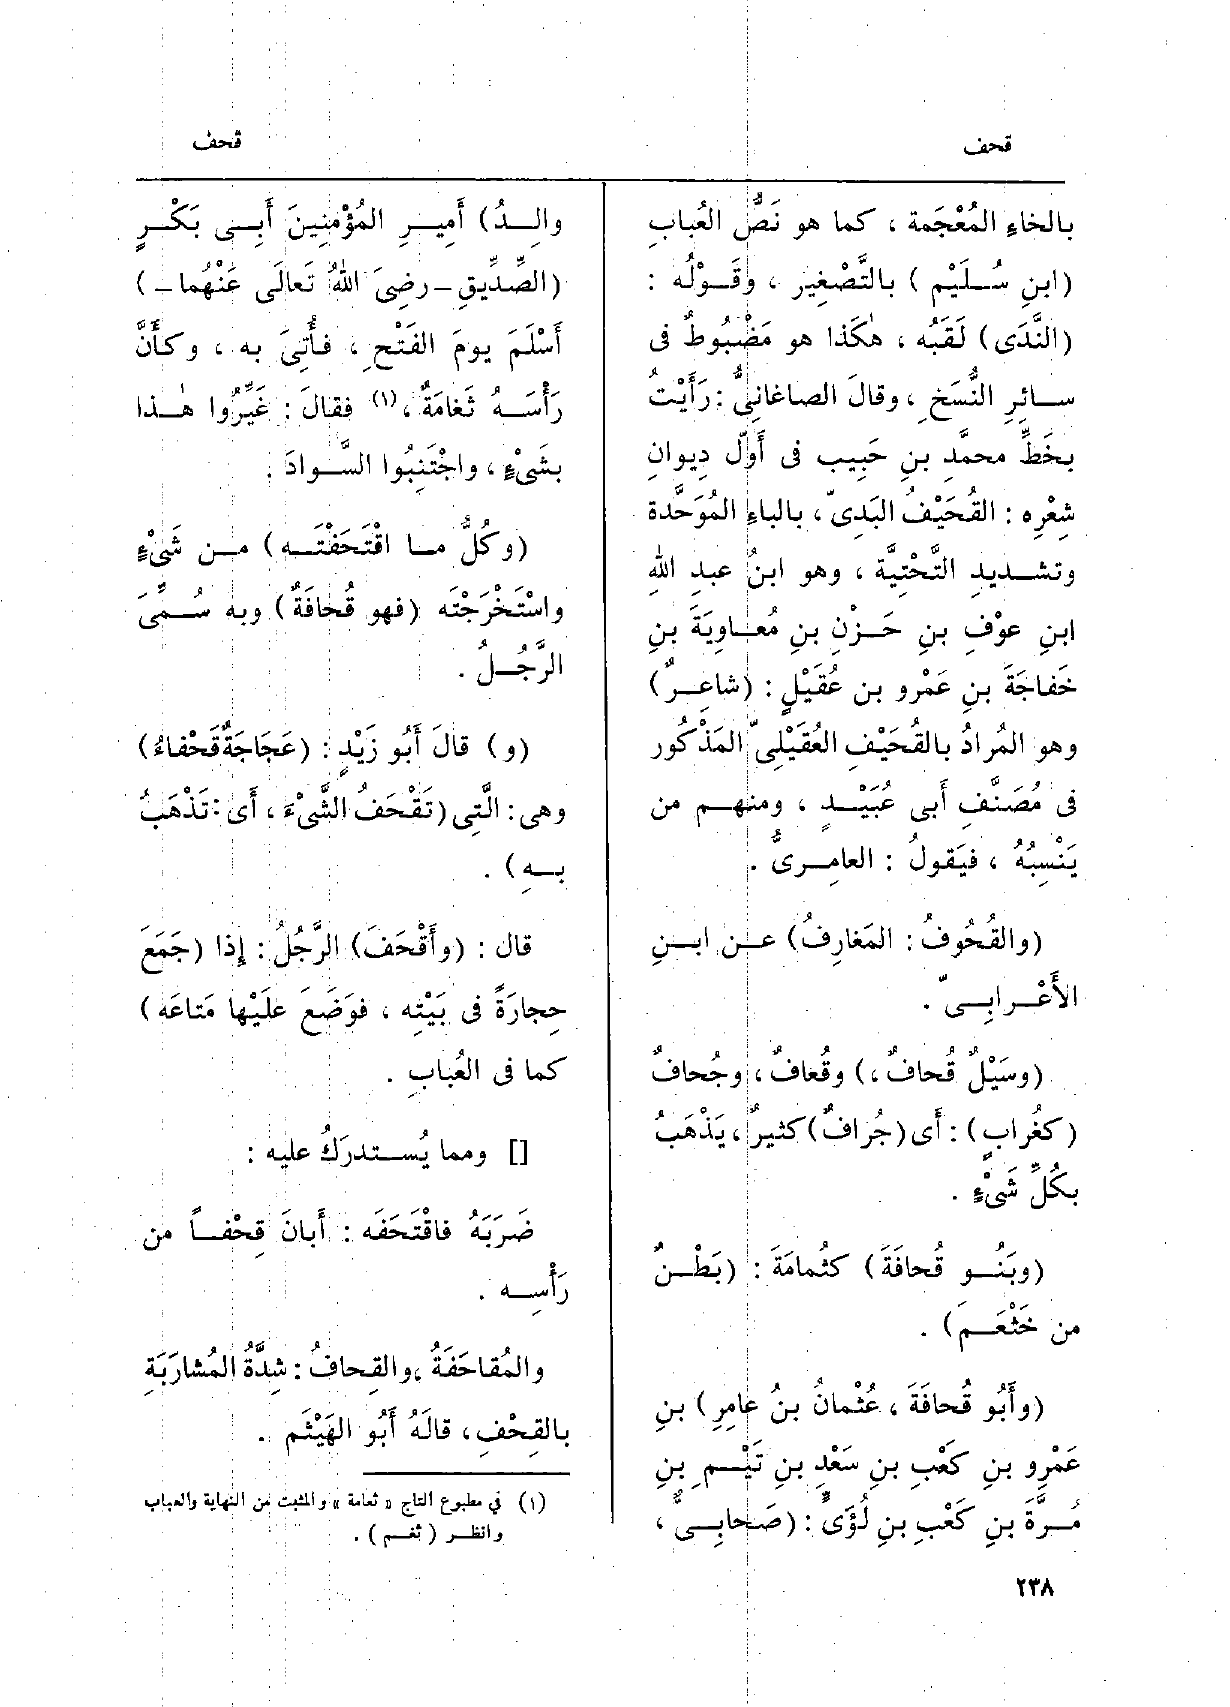 قحف
قحف
بالخاءِ المُعْجَمة ، كما هو نَصُّ العُبابِ
(ابنِ سُـلَيْمٍ ) بالتَّصْغِيرِ ، وقَـوْلُه :
(النَّدَى) لَقَبُه ، هٰكَذا هو مَضْبُوطٌ فى
سـائرِ النُّسَخِ ، وقالَ الصاغانِىُّ : رَأَيْتُ
بخَطِّ محمَّدِ بنِ حَبِيب فى أَوّل دِيوانِ
شِعْرِه : القُحَيْفُ البَدِىّ ، بالباءِ المُوَحَّدة
وتشـديدِ التَّحْتِيَّة ، وهو ابنُ عبدِ اللهِ
ابنِ عوْفِ بنِ حَـزْنِ بنِ مُعـاوِيَةَ بنِ
خَفاجَةَ بنِ عَمْرو بن عُقَيْلٍ : (شاعِـرٌ)
وهو المُرادُ بالقُحَيْفِ العُقَيْلِىّ المَذْكُور
فى مُصَنَّفِ أبى عُبَيْـدٍ ، ومنهـم من
يَنْسِبُهُ ، فيَقولُ : العامِـرىُّ .
(والقُحُوفُ : المَغارِفُ) عـن ابـنِ
الأَعْـرابِـىّ .
(وسَيْلٌ قُحافٌ ،) وقُعافٌ ، وجُحافٌ
(كغُرابٍ) : أَى (جُرافٌ) كثيرٌ ، يَذْهَبُ
بكُلِّ شَىْءٍ .
(وبَنُـو قُحافَةَ) كثُمامَةَ : (بَطْـنٌ
من خَثْعَـمَ) .
(وأَبُو قُحافَةَ ، عُثْمانُ بنُ عامِرِ) بنِ
عَمْرِو بنِ كَعْبِ بنِ سَعْدِ بنِ تَيْـمِ بنِ
مُـرَّةَ بنِ كَعْبِ بنِ لُؤَىٍّ : (صَحابِـىٌّ ،
والِـدُ) أَمِيـرِ المُؤْمنِينَ أَبِـى بَكْـرٍ
(الصِّدِّيقِ ـ رضِىَ اللهُ تَعالَى عَنْهُما ـ )
أَسْلَمَ يومَ الفَتْحِ ، فأُتِىَ به ، وكأَنَّ
رَأْسَـهُ ثَغامَةٌ ، (١) فقالَ : غَيِّرُوا هـٰذا
بشَىْءٍ ، واجْتَنِبُوا السَّـوادَ .
(وكُلُّ مـا اقْتَحَفْتَـه) مـن شَىْءٍ
واسْتَخْرَجْتَه (فهو قُحافَةٌ) وبه سُـمِّىَ
الرَّجُـلُ .
(و) قالَ أَبُو زَيْدٍ : (عَجَاجَةٌ قَحْفاءُ)
وهى : الَّتِى (تَقْحَفُ الشَّىْءَ ، أَى : تَذْهَبُ
بـهِ) .
قال : (وأَقْحَفَ) الرَّجُلُ : إِذا (جَمَعَ
حِجارَةً فى بَيْتِه ، فوَضَعَ علَيْها مَتاعَه)
كما فى العُبابِ .
[] ومما يُسـتدرَكُ عليه :
ضَرَبَهُ فاقْتَحَفَه : أَبانَ قِحْفـاً من
رَأْسِـه .
والمُقاحَفَةُ ، والقِحافُ : شِدَّةُ المُشارَبَةِ
بالقِحْفِ ، قالَهُ أَبُو الهَيْثَم .
(١) في مطبوع التاج « ثعامة » والمثبت من النهاية والعباب
وانظـر ( ثغـم ) .
٢٣٨